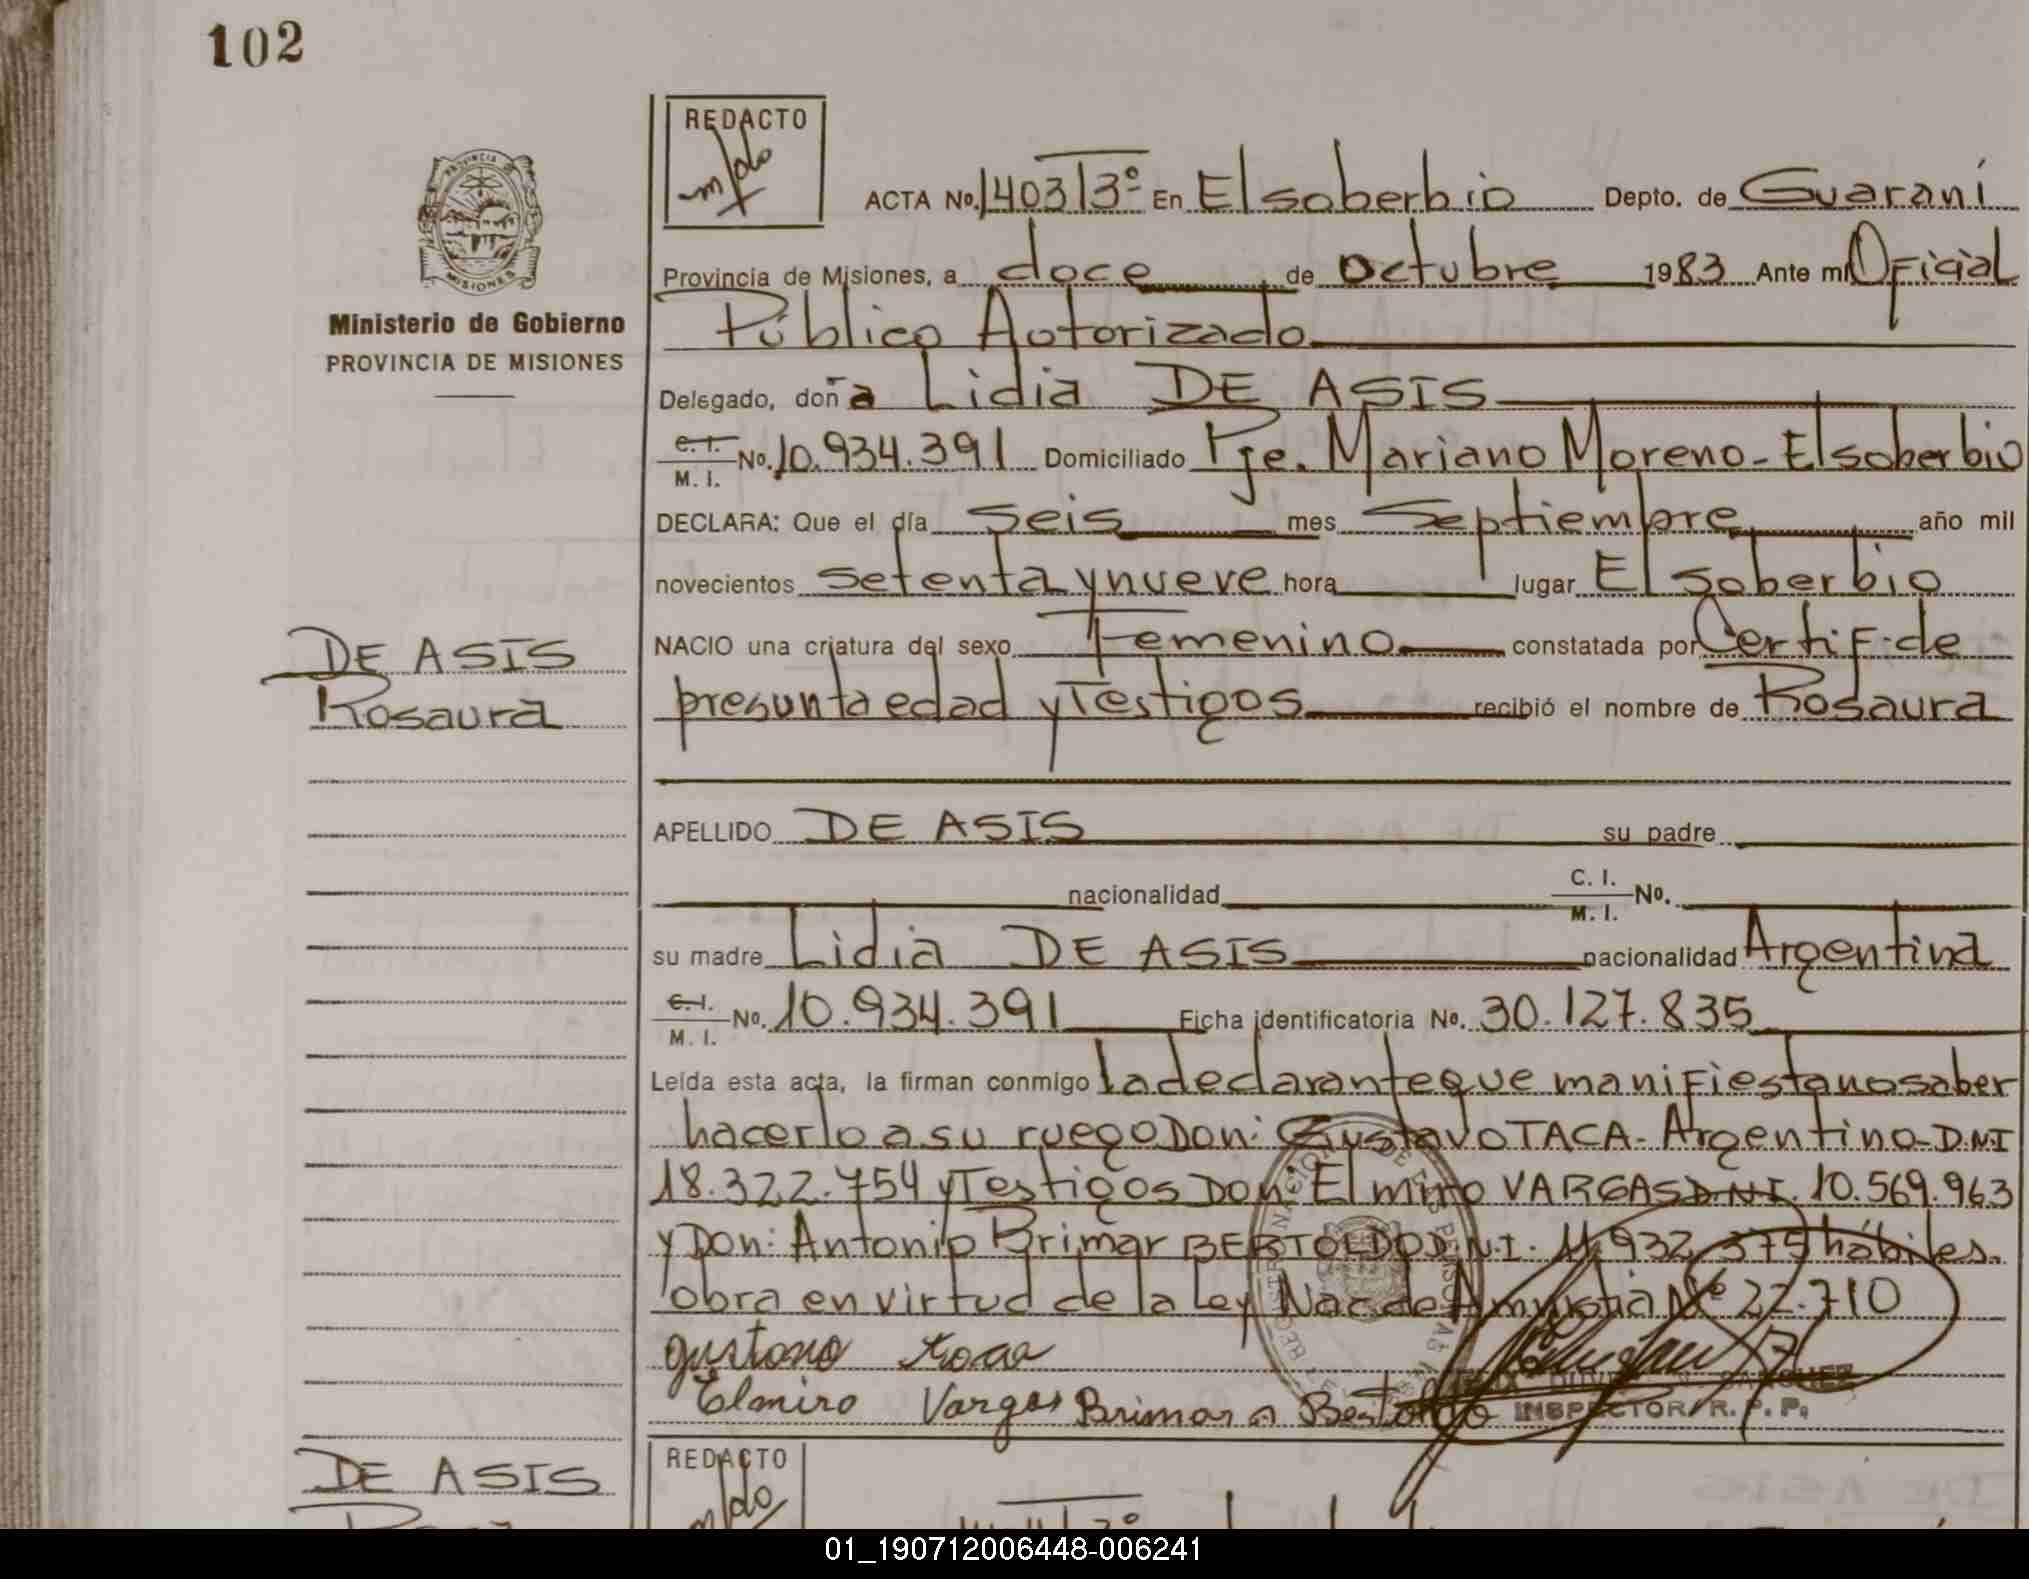 102
REDACTO
ACTA No. 1403 T3º En El soberbio Depto. de Guaraní
Provincia de Misiones, a doce de octubre 1983 Ante mi Oficial
Público Autorizado
Delegado, doña Lidia DE ASIS
C. I. / M. I. No. 10.934.391 Domiciliado Pje. Mariano Moreno - El soberbio
DECLARA: Que el día seis mes septiembre año mil
novecientos setenta y nueve hora lugar El soberbio
NACIO una criatura del sexo Femenino constatada por Certif. de
presunta edad y Testigos recibió el nombre de Rosaura
APELLIDO DE ASIS su padre
nacionalidad C. I. / M. I. No.
su madre Lidia DE ASIS nacionalidad Argentina
C. I. / M. I. No. 10.934.391 Ficha identificatoria No. 30.127.835
Leída esta acta, la firman conmigo la declarante que manifiesta no saber
hacerlo a su ruego Don: Gustavo TACA - Argentino - D.N.I
18.322.754 y Testigos Don Elmiro VARGAS D.N.I. 10.569.963
y Don: Antonio Brimar BERTOLDO D.N.I. 11.932.375 hábiles.
obra en virtud de la Ley Nac. de Amnistia Nº 22.710
Elmiro Vargas Brimar A Bertoldo
INSPECTOR R. P. P.
PROVINCIA DE
MISIONES
Ministerio de Gobierno
PROVINCIA DE MISIONES
DE ASIS
Rosaura
DE ASIS
REDACTO
01_190712006448-006241